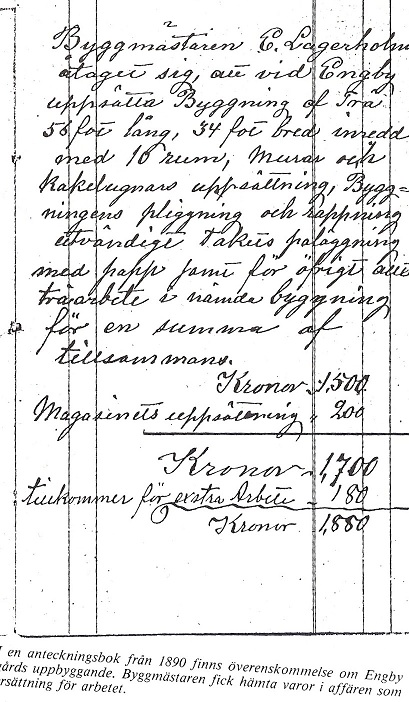 Byggmästaren E. Lagerholm
åtaget sig, att vid Engby
uppsätta Byggning af Trä
56 fot lång, 34 fot bred inredd
med 10 rum, Murar och
Kakelugnars uppsättning, Bygg=
ningens pliggning och rappning
utvändigt takets påläggning
med papp samt för öfrigt allt
träarbete i nämda byggning
för en summa af
tillsammans.
Kronor 1,500
Magasinets uppsättning " 200
Kronor 1,700
tillkommer för extra Arbete 180
Kronor 1,880
I en anteckningsbok från 1890 finns överenskommelse om Engby
gårds uppbyggande. Byggmästaren fick hämta varor i affären som
ersättning för arbetet.